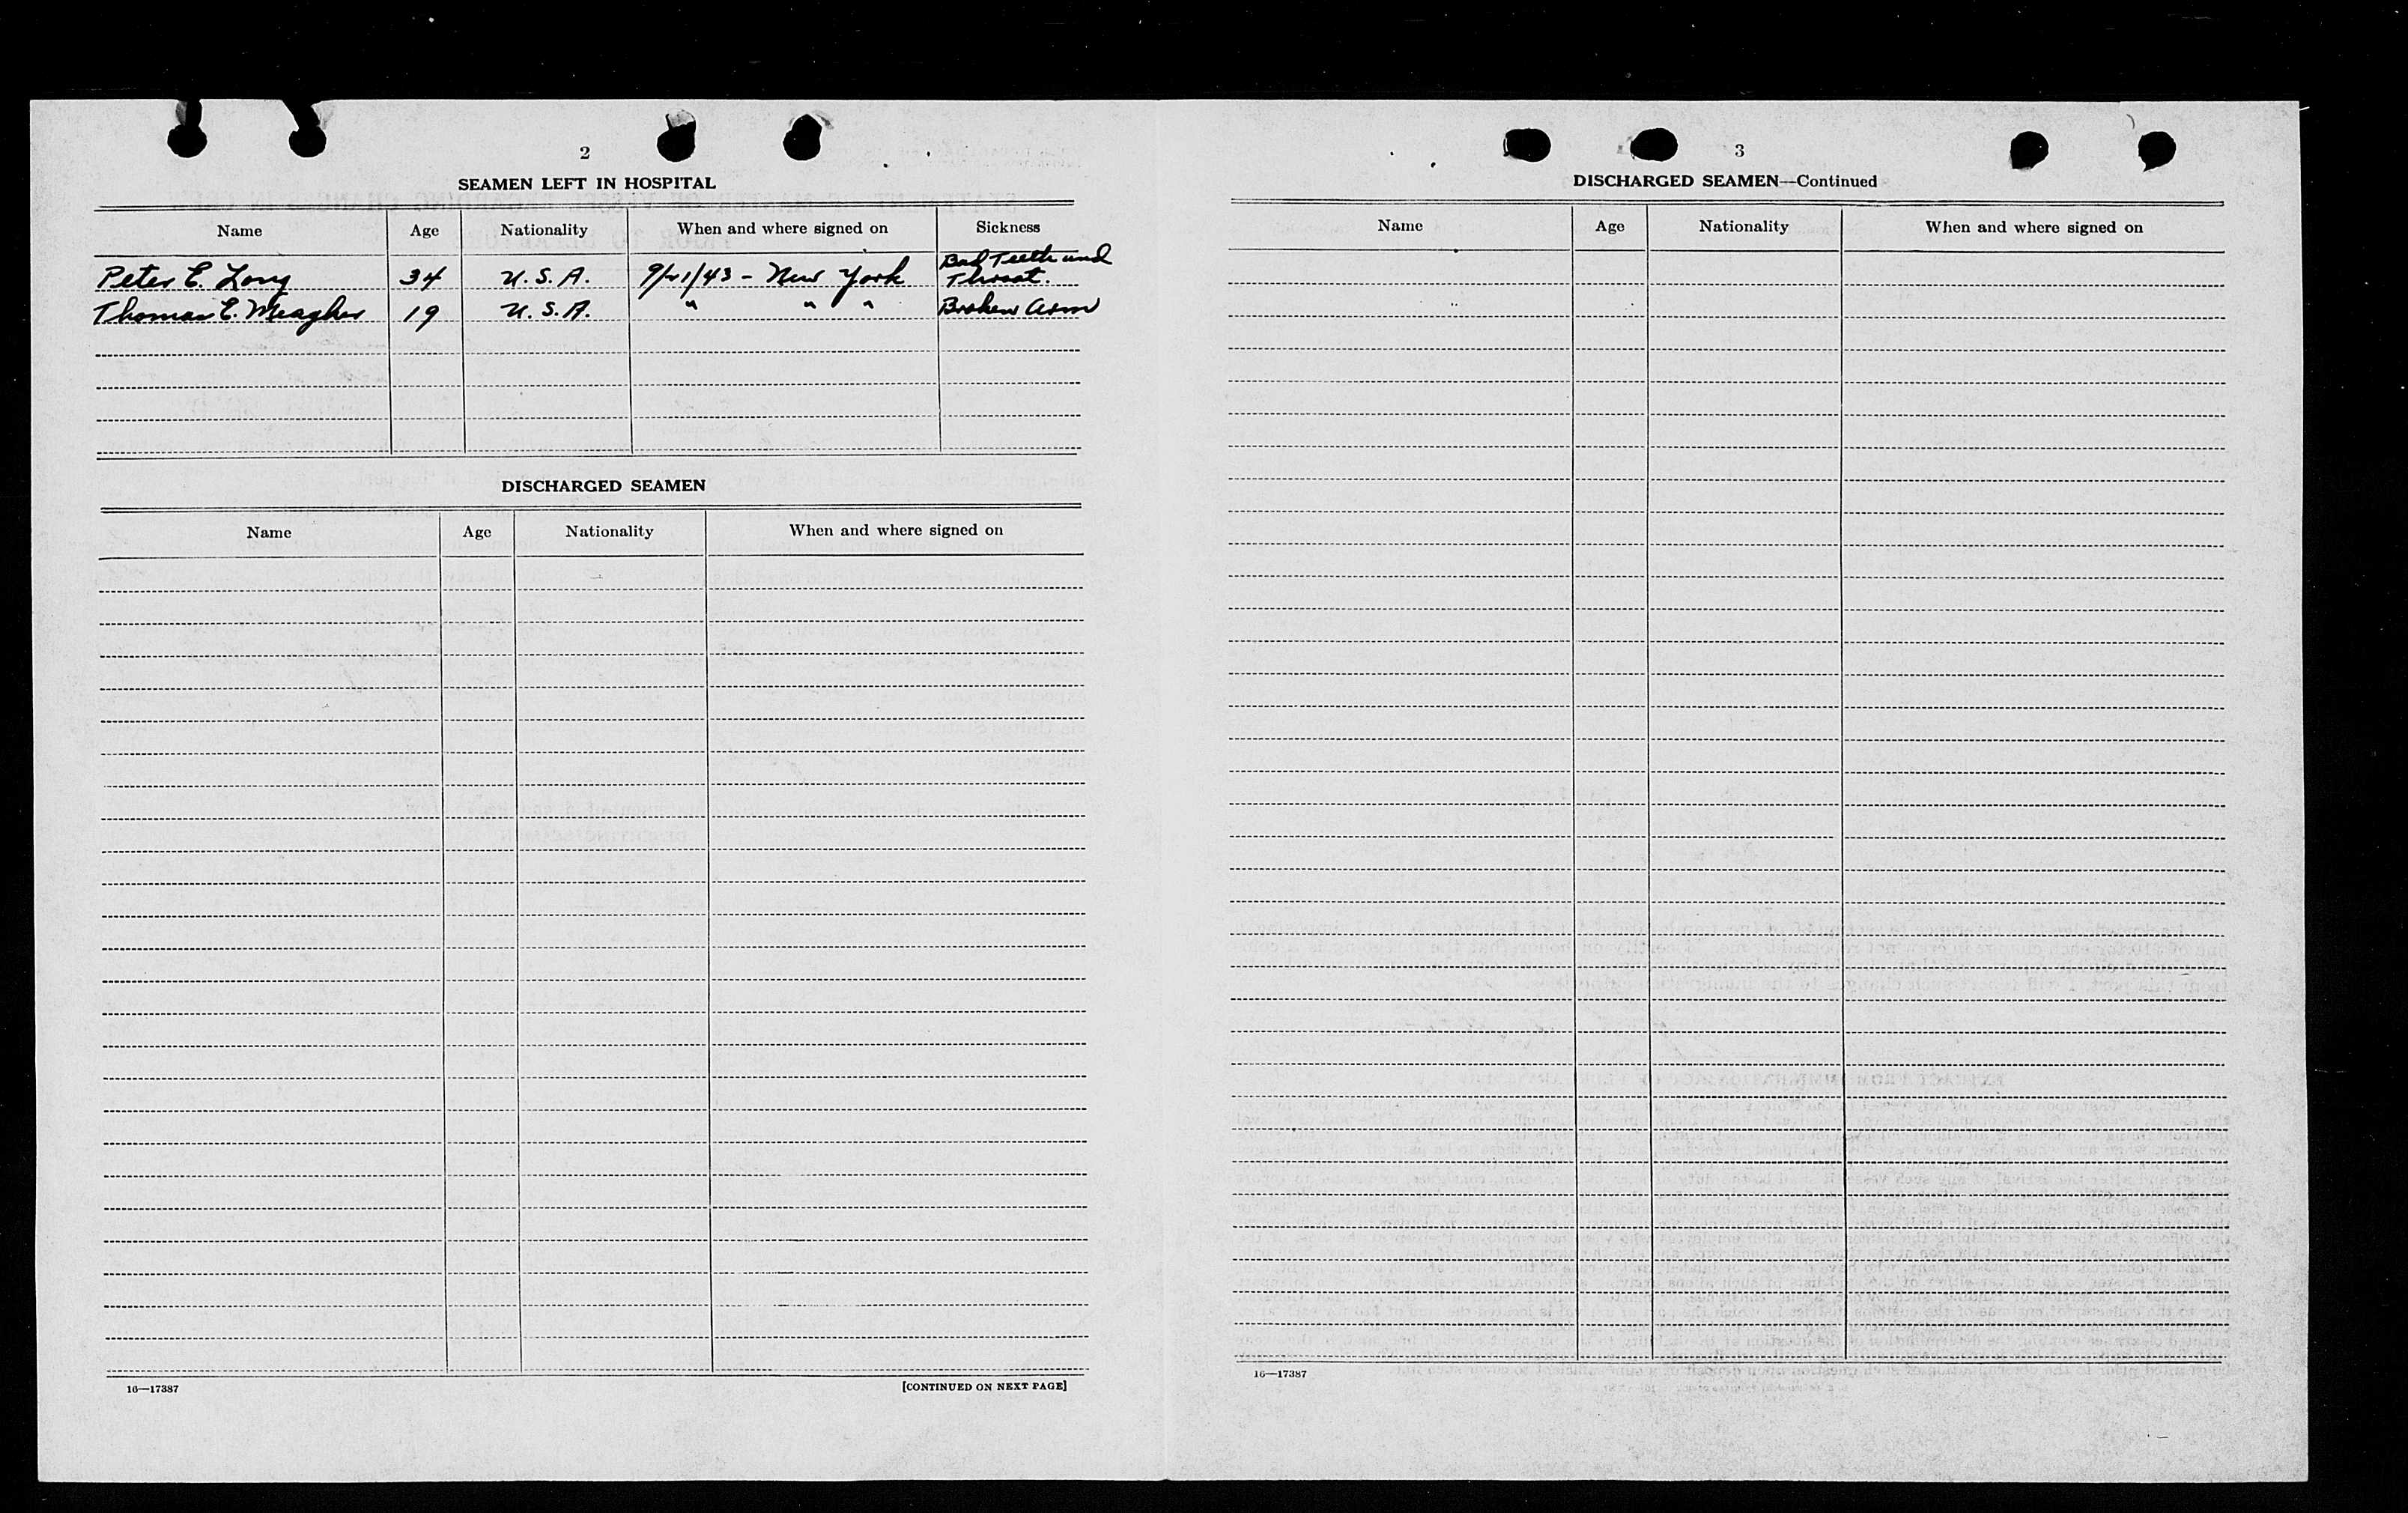 2
SEAMEN LEFT IN HOSPITAL
Name Age Nationality When and where signed on Sickness
Peter E. Long 34 U.S.A. 9/21/43 - New York Bad Teeth and Throat.
Thomas E. Meagher 19 U.S.A. " " " Broken Arm
DISCHARGED SEAMEN
Name Age Nationality When and where signed on
16—17387 [CONTINUED ON NEXT PAGE]
3
DISCHARGED SEAMEN—Continued
Name Age Nationality When and where signed on
16—17387